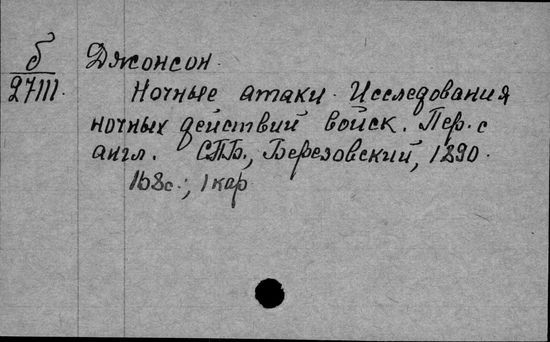 б Джонсон.
27111. Ночные атаки. Исследования
ночных действий войск. Пер. с
англ. СПБ., Березовский, 1890.
168с.; 1 кар